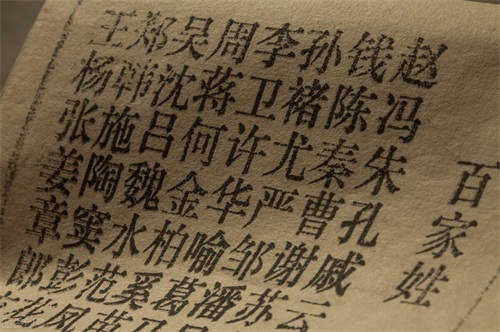 百家姓
赵钱孙李周吴郑王
冯陈褚卫蒋沈韩杨
朱秦尤许何吕施张
孔曹严华金魏陶姜
戚谢邹喻柏水窦章
云苏潘葛奚范彭郎
马苗凤花